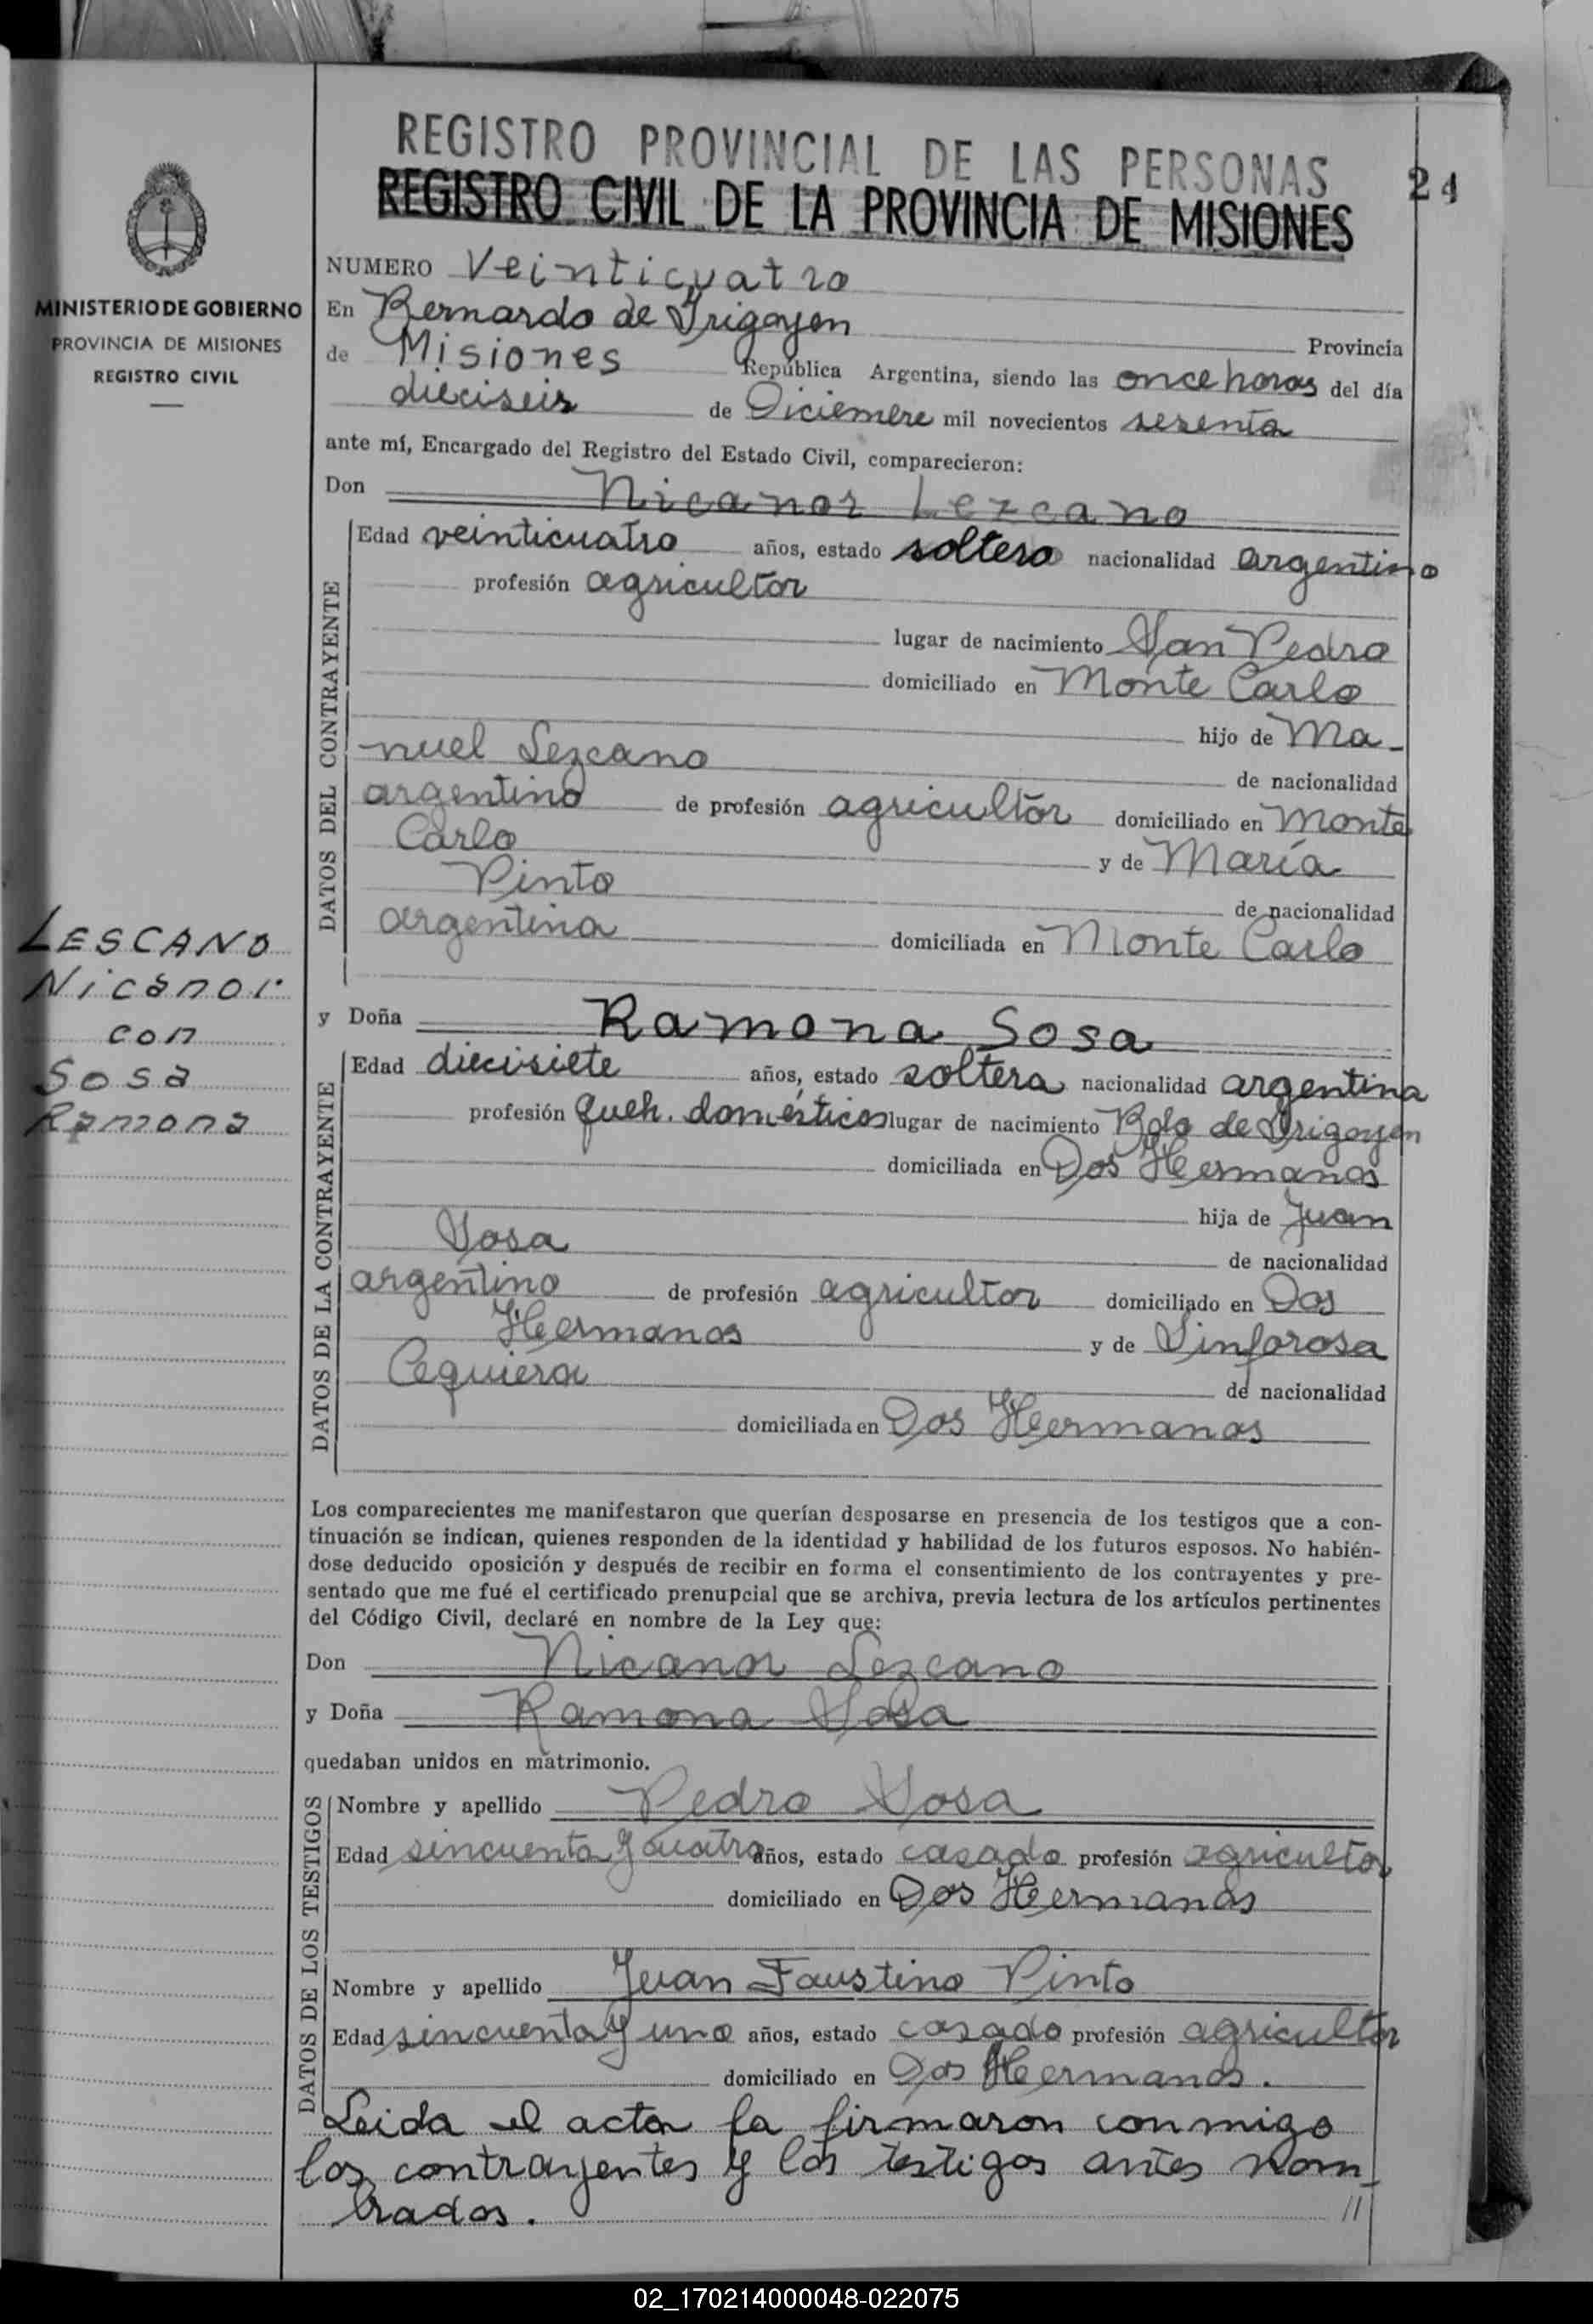 REGISTRO PROVINCIAL DE LAS PERSONAS
24
REGISTRO CIVIL DE LA PROVINCIA DE MISIONES
MINISTERIO DE GOBIERNO
PROVINCIA DE MISIONES
REGISTRO CIVIL
NUMERO Veinticuatro
En Bernardo de Irigoyen Provincia
de Misiones República Argentina, siendo las once horas del día
dieciseis de Diciembre mil novecientos sesenta
ante mí, Encargado del Registro del Estado Civil, comparecieron:
Don Nicanor Lezcano
DATOS DEL CONTRAYENTE
Edad veinticuatro años, estado soltero nacionalidad argentino
profesión agricultor
lugar de nacimiento San Pedro
domiciliado en Monte Carlo
hijo de Ma-
nuel Lezcano de nacionalidad
argentino de profesión agricultor domiciliado en Monte
Carlo y de María
Pinto de nacionalidad
argentina domiciliada en Monte Carlo
LESCANO
Nicanor
con
Sosa
Ramona
y Doña Ramona Sosa
DATOS DE LA CONTRAYENTE
Edad diecisiete años, estado soltera nacionalidad argentina
profesión Queh. domésticos lugar de nacimiento Bdo de Irigoyen
domiciliada en Dos Hermanos
hija de Juan
Sosa de nacionalidad
argentino de profesión agricultor domiciliado en Dos
Hermanos y de Sinforosa
Cequiera de nacionalidad
domiciliada en Dos Hermanos
Los comparecientes me manifestaron que querían desposarse en presencia de los testigos que a con-
tinuación se indican, quienes responden de la identidad y habilidad de los futuros esposos. No habién-
dose deducido oposición y después de recibir en forma el consentimiento de los contrayentes y pre-
sentado que me fué el certificado prenupcial que se archiva, previa lectura de los artículos pertinentes
del Código Civil, declaré en nombre de la Ley que:
Don Nicanor Lezcano
y Doña Ramona Sosa
quedaban unidos en matrimonio.
DATOS DE LOS TESTIGOS
Nombre y apellido Pedro Sosa
Edad sincuenta y cuatro años, estado casado profesión agricultor
domiciliado en Dos Hermanos
Nombre y apellido Juan Faustino Pinto
Edad sincuenta y uno años, estado casado profesión agricultor
domiciliado en Dos Hermanos.
Leida el acta la firmaron conmigo
los contrayentes y los testigos antes nom-
brados. //
02_170214000048-022075